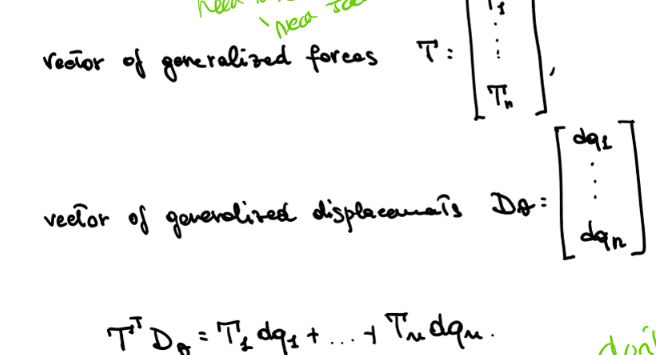 need
near
vector of generalized forces T = [T1 ⋮ Tn],
vector of generalized displacements Dθ = [dq1 ⋮ dqn]
T^T Dθ = T1 dq1 + ... + Tn dqn.
don't